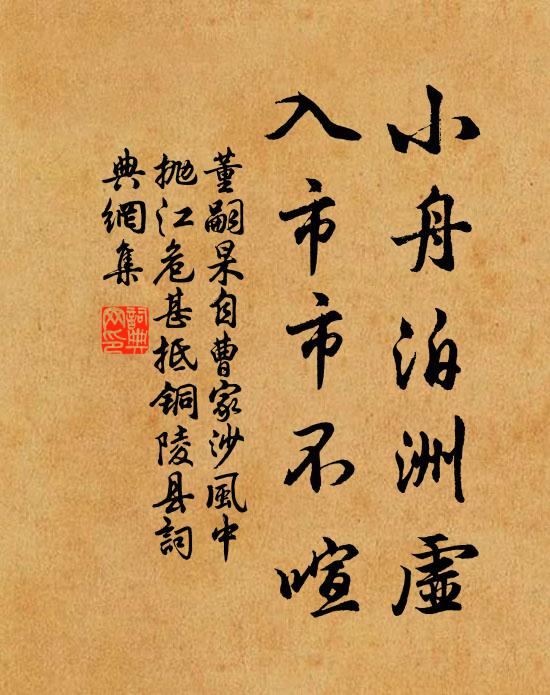 小舟泊洲虛
入市市不喧
董嗣杲自曹家沙風中
抛江危甚抵铜陵县詞
典網集
詞典網印